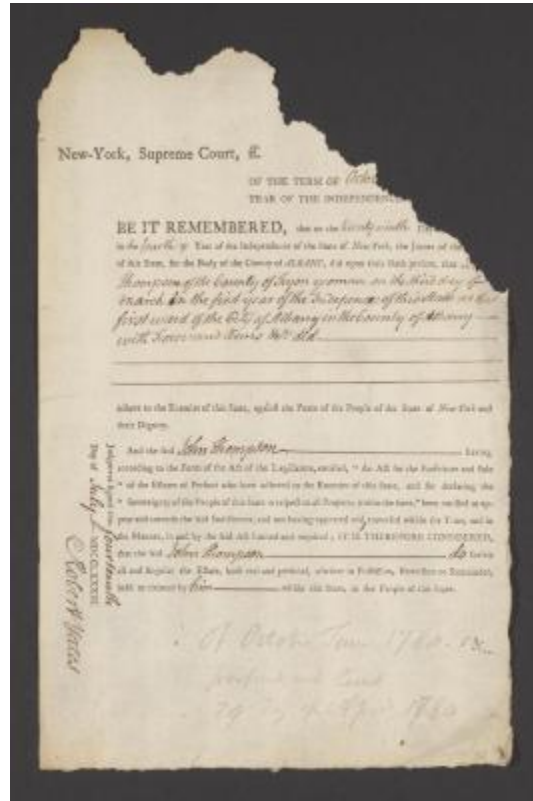 New-York, Supreme Court, ſſ.
OF THE TERM OF Octo
YEAR OF THE INDEPENDENCE
BE IT REMEMBERED, that on the twenty ninth
in the fourth Year of the Independence of the State of New York, the Jurors of the
of this State, for the Body of the County of ALBANY, did upon their Oath present, that
Thompson of the County of Tryon yeoman on the third day of
March in the first year of the Independence of this State at the
first ward of the City of Albany in the County of Albany
with Force and Arms &c. did
adhere to the Enemies of this State, against the Peace of the People of the State of New York and
their Dignity.
And the said John Thompson having
according to the Form of the Act of the Legislature, entitled, " An Act for the Forfeiture and Sale
" of the Estates of Persons who have adhered to the Enemies of this State, and for declaring the
" Sovereignty of the People of this State in respect to all Property within the same," been notified to ap-
pear and traverse the said Indictment, and not having appeared and traversed within the Time, and in
the Manner, in and by the said Act limited and required; IT IS THEREFORE CONSIDERED,
that the said John Thompson do forfeit
all and singular the Estate, both real and personal, whereof in Possession, Reversion or Remainder,
held or claimed by him within this State, to the People of this State.
Judgment signed this fourteenth
Day of July MDCCLXXXIII
Robert Yates
Of October Term 1780
29 April 1780